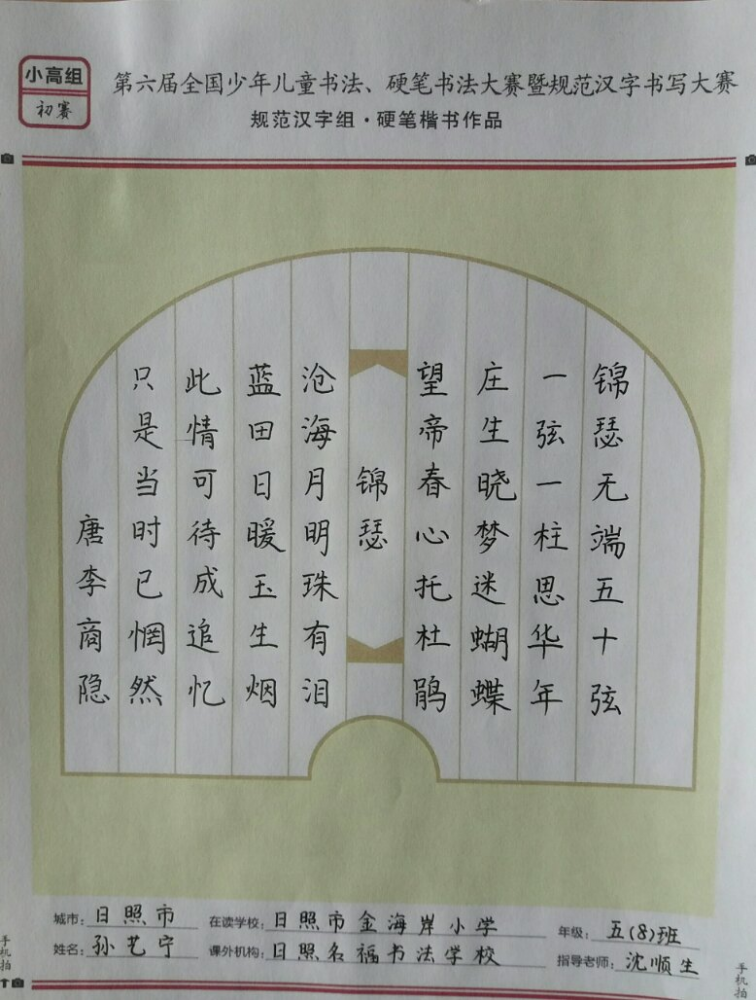 小高组
初赛
第六届全国少年儿童书法、硬笔书法大赛暨规范汉字书写大赛
规范汉字组·硬笔楷书作品
锦瑟无端五十弦
一弦一柱思华年
庄生晓梦迷蝴蝶
望帝春心托杜鹃
锦瑟
沧海月明珠有泪
蓝田日暖玉生烟
此情可待成追忆
只是当时已惘然
唐李商隐
城市：日照市
在读学校：日照市金海岸小学
年级：五(8)班
姓名：孙艺宁
课外机构：日照名福书法学校
指导老师：沈顺生
手机拍
手机拍